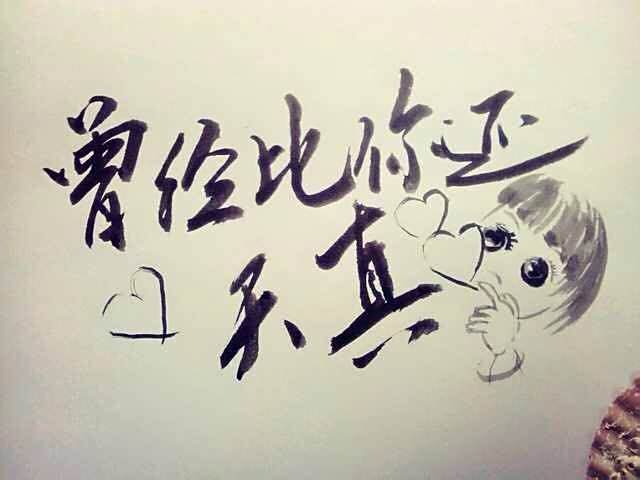 曾经比你还
天真